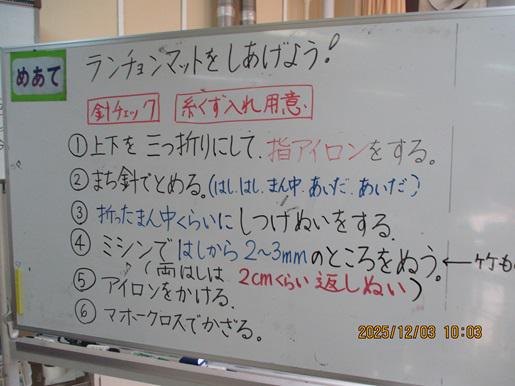 めあて
ランチョンマットをしあげよう!
針チェック 糸くず入れ用意.
①上下を三つ折りにして.指アイロンをする。
②まち針でとめる。(はし.はし.まん中.あいだ.あいだ)
③折ったまん中くらいにしつけぬいをする.
④ミシンではしから2~3mmのところをぬう。←
(両はしは2cmくらい返しぬい)
⑤アイロンをかける.
⑥マオークロスでかざる。
2025/12/03 10:03